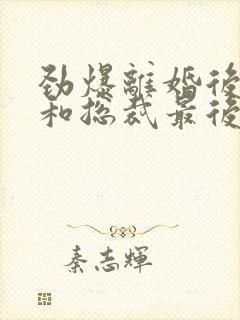 劲爆離婚後
和总裁最後
秦志輝